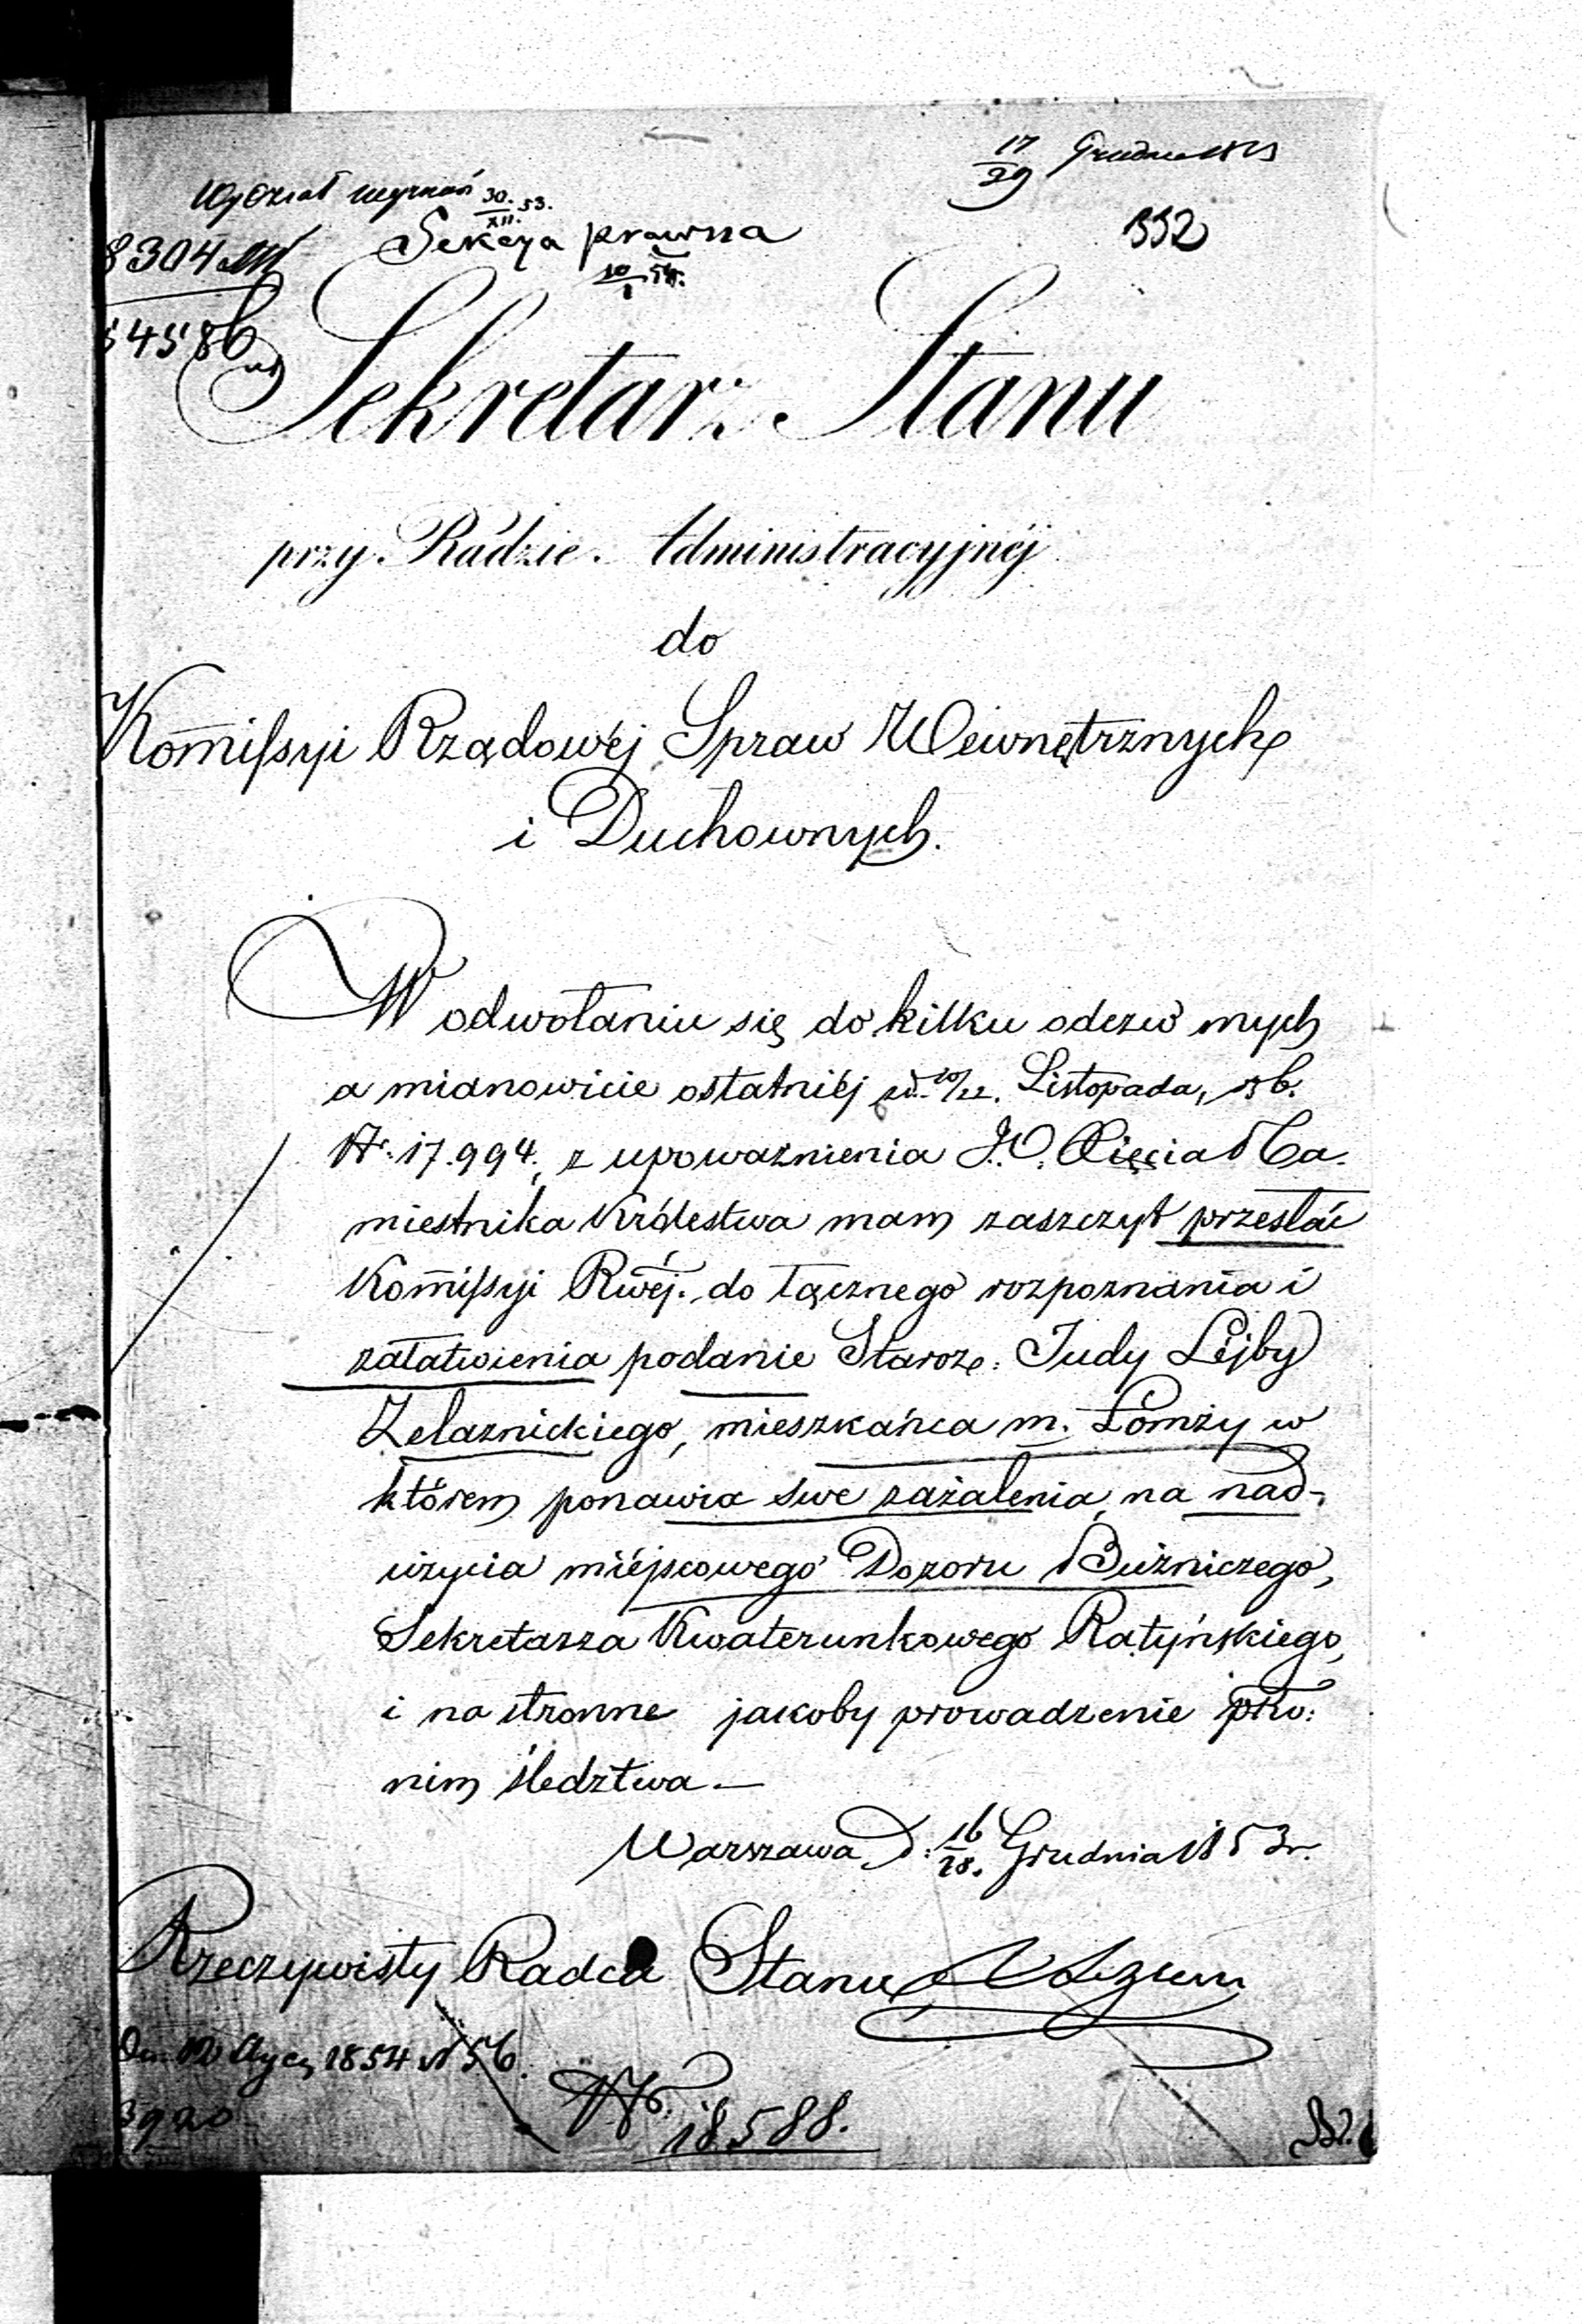 17/29 Grudnia 1853
Wydział wyznań 30/XII. 53.
Sekcya prawna
10/1 54.
332
8304
5458
Sekretarz Stanu
przy Radzie Administracyjnéj
do
Komissyi Rządowéj Spraw Wewnętrznych
i Duchownych.
W odwołaniu się do kilku odezw mych
a mianowicie ostatniéj z d. 10/22. Listopada, r. b.
Nr. 17.994, z upoważnienia J. O. Xięcia Na-
miestnika Królestwa mam zaszczyt przesłać
Komissyi Rwéj. do łącznego rozpoznania i
załatwienia podanie Staroz: Judy Lejby
Zelaznickiego, mieszkańca m. Łomży w
którem ponawia swe zażalenia, na nad-
użycia miéjscowego Dozoru Bużniczego,
Sekretarza Kwaterunkowego Ratyńskiego,
i na stronne jakoby prowadzenie pko:
nim śledztwa.—
Warszawa d: 16/28. Grudnia 1853 r.
Rzeczywisty Radca Stanu
1854 N 56.
3920
Nr. 18.588.